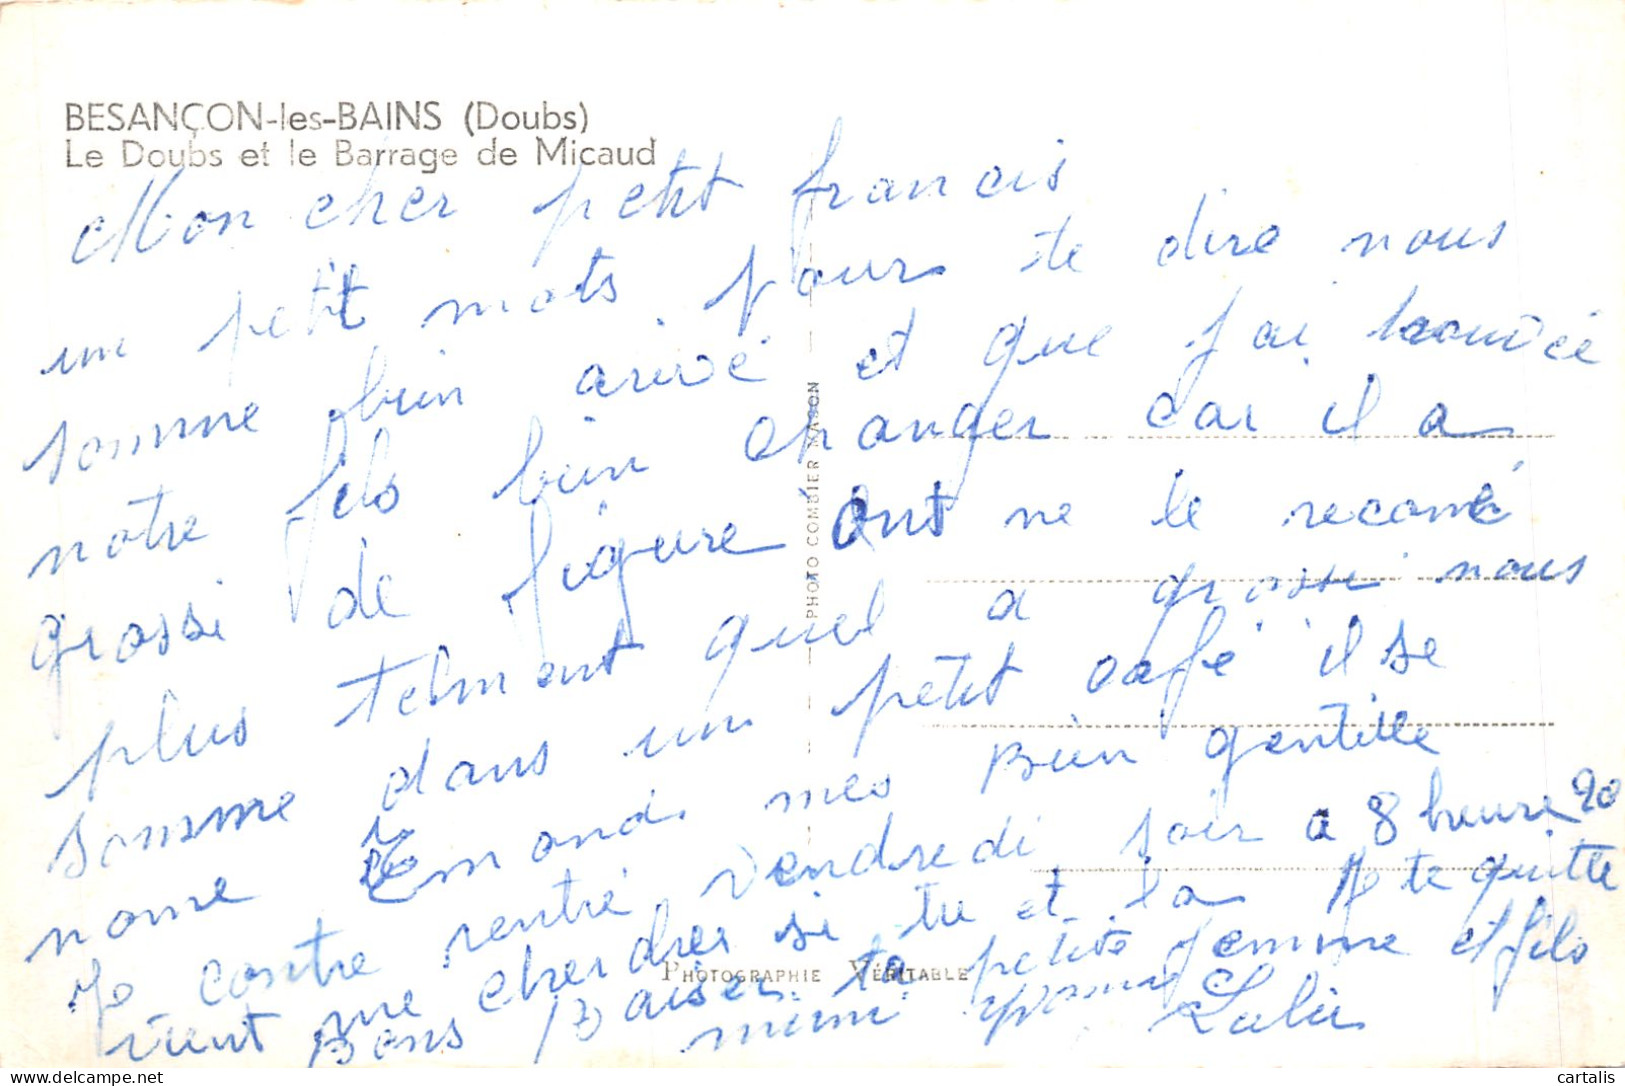 BESANÇON-les-BAINS (Doubs)
Le Doubs et le Barrage de Micaud
Mon cher petit francis
un petit mots pour te dire nous
somme bien arivé et que j'ai trouvée
notre fils bien changer car il a
grossi de figure ont ne le reconné
plus telment quel a grossi nous
somme dans un petit café il se
nome Emond mes bien gentille
Je contre rentré vendredi soir a 8 heure 20
vient me chercher si tu et la Je te quitte
Bons Baiser ta petite femme et fils
mimi
Lulu
PHOTO COMBIER MACON
PHOTOGRAPHIE VÉRITABLE
cartalis